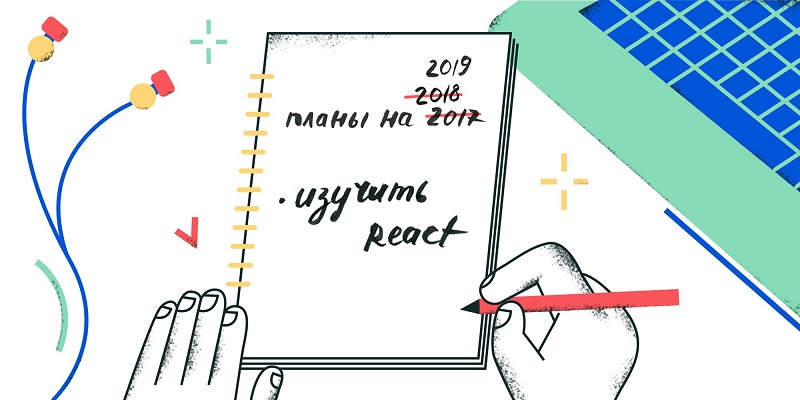 2019
2018
планы на 2017
• изучить
React